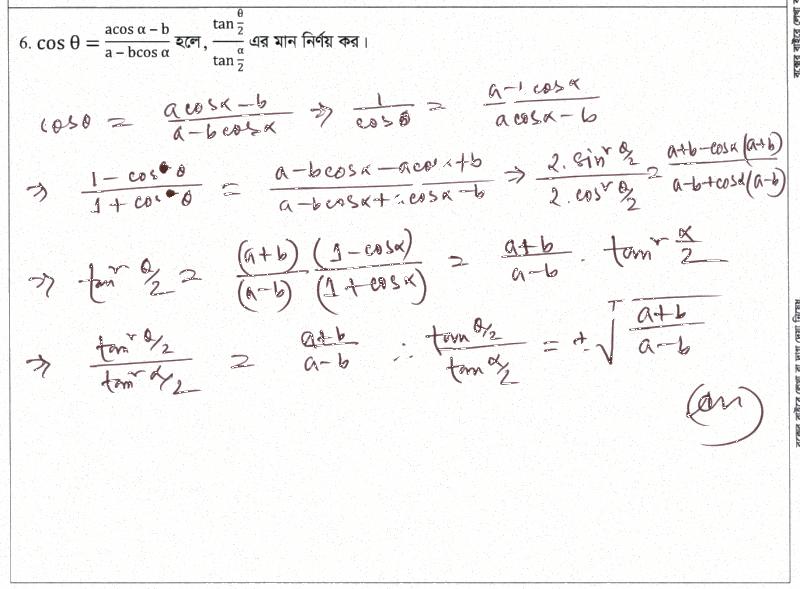 6. cos θ = (acos α – b)/(a – bcos α) হলে, (tan θ/2)/(tan α/2) এর মান নির্ণয় কর।
cosθ = (acosα – b)/(a – bcosα) ⇒ 1/cosθ = (a – b cosα)/(acosα – b)
⇒ (1 – cosθ)/(1 + cosθ) = (a – bcosα – acosα + b)/(a – bcosα + acosα – b) ⇒ (2. sin² θ/2)/(2. cos² θ/2) = (a+b – cosα(a+b))/(a–b+cosα(a–b))
⇒ tan² θ/2 = (a+b)/(a–b) (1 – cosα)/(1 + cosα) = (a+b)/(a–b) . tan² α/2
⇒ (tan² θ/2)/(tan² α/2) = (a+b)/(a–b) ∴ (tan θ/2)/(tan α/2) = ± √((a+b)/(a–b))
(Ans)